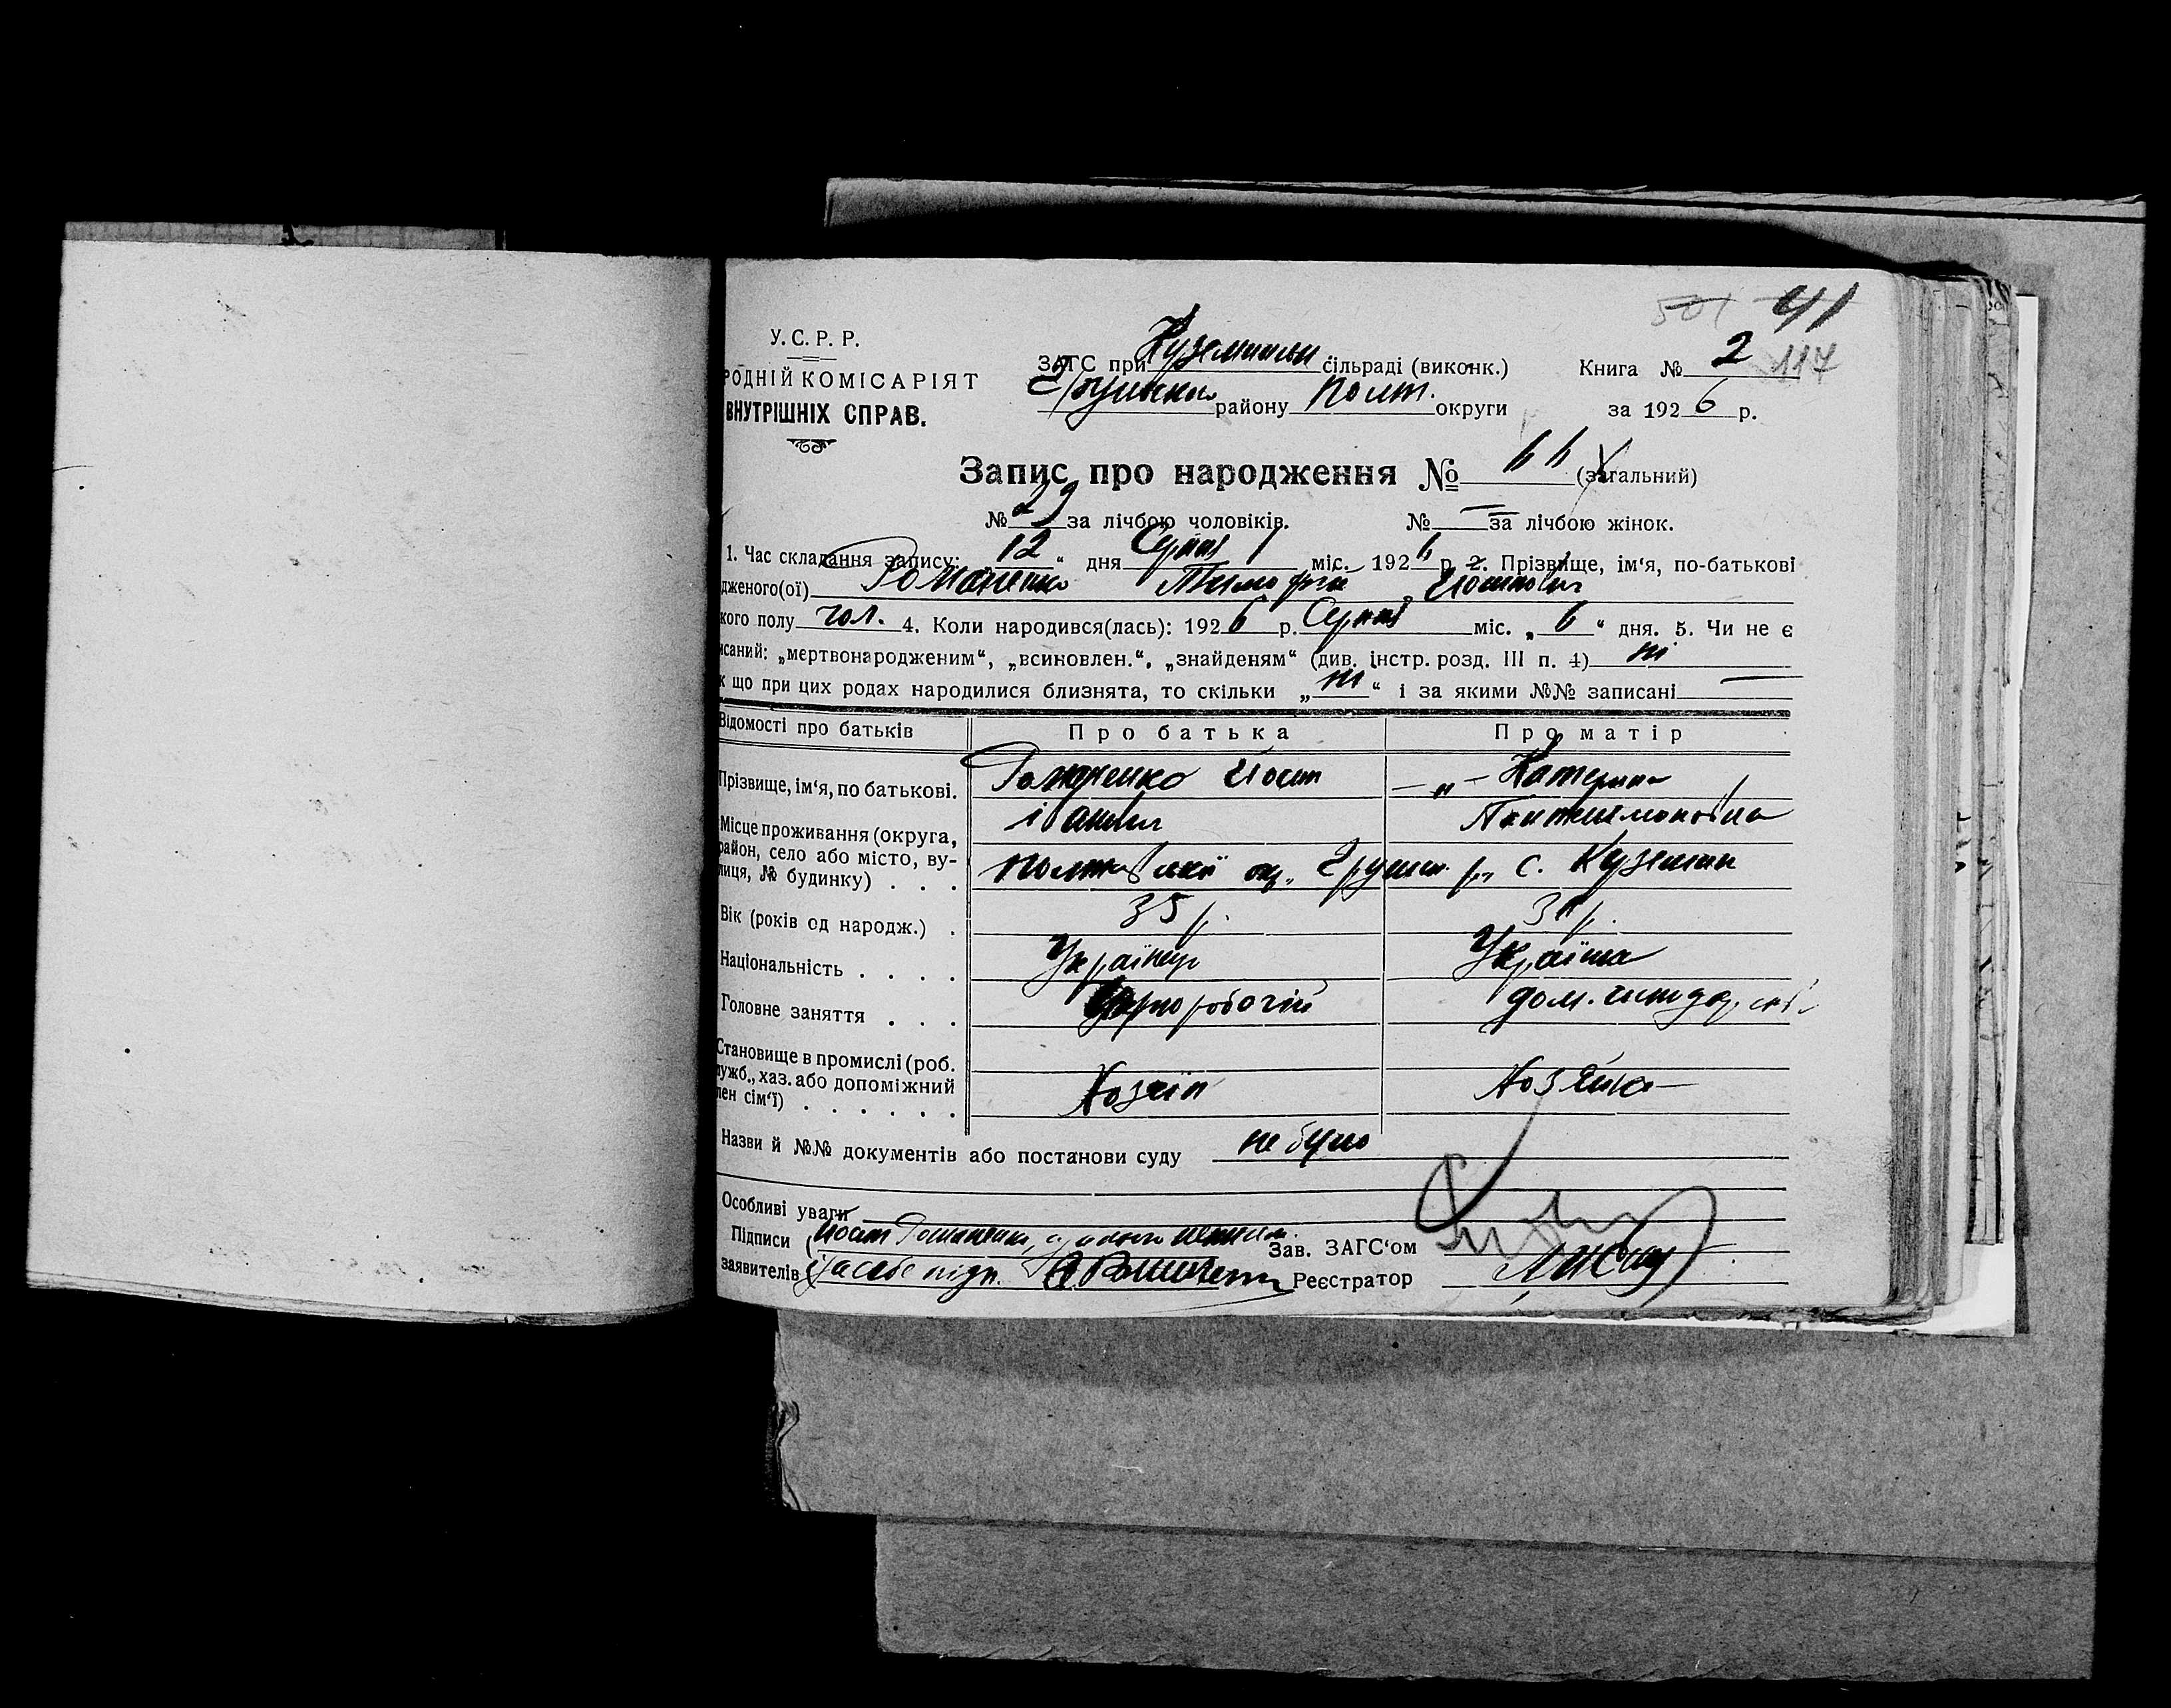 501 41
У. С. Р. Р.
РОДНІЙ КОМІСАРІЯТ
ВНУТРІШНІХ СПРАВ.
ЗАГС при сільраді (виконк.)
району Полт. округи
Книга № 2 117
за 1926 р.
Запис про народження № 66 (загальний)
№ 29 за лічбою чоловіків. № — за лічбою жінок.
1. Час складання запису: „12“ дня Серпня міс. 1926 р. 2. Прізвище, ім‘я, по-батькові
дженого(ої) Романенко Тимофій Йосипович
кого полу чол. 4. Коли народився(лась): 1926 р. Серпня міс. „6“ дня. 5. Чи не є
исаний: „мертвонародженим“, „всиновлен.“, „знайденям“ (див. інстр. розд. III п. 4) ні
к що при цих родах народилися близнята, то скільки „ні“ і за якими №№ записані —
Відомості про батьків Про батька Про матір
Прізвище, ім‘я, по батькові. Романенко Йосип — „ — Катерина
Місце проживання (округа, район, село або місто, вулиця, № будинку) . . . Полтавської окр. Грунськ. р. с. Куземин
Вік (років од народж.) . 35 р.
Національність . . . . Українець Українка
Головне заняття . . . Чорноробочій дом.
Становище в промислі (роб.
лужб., хаз. або допоміжний
лен сім‘ї) . . . . . . Хозяїн Хозяйка
Назви й №№ документів або постанови суду не було
Особливі уваги
Підписи Йосип Романенко, Зав. ЗАГС‘ом
заявителів за себе підп. Реєстратор